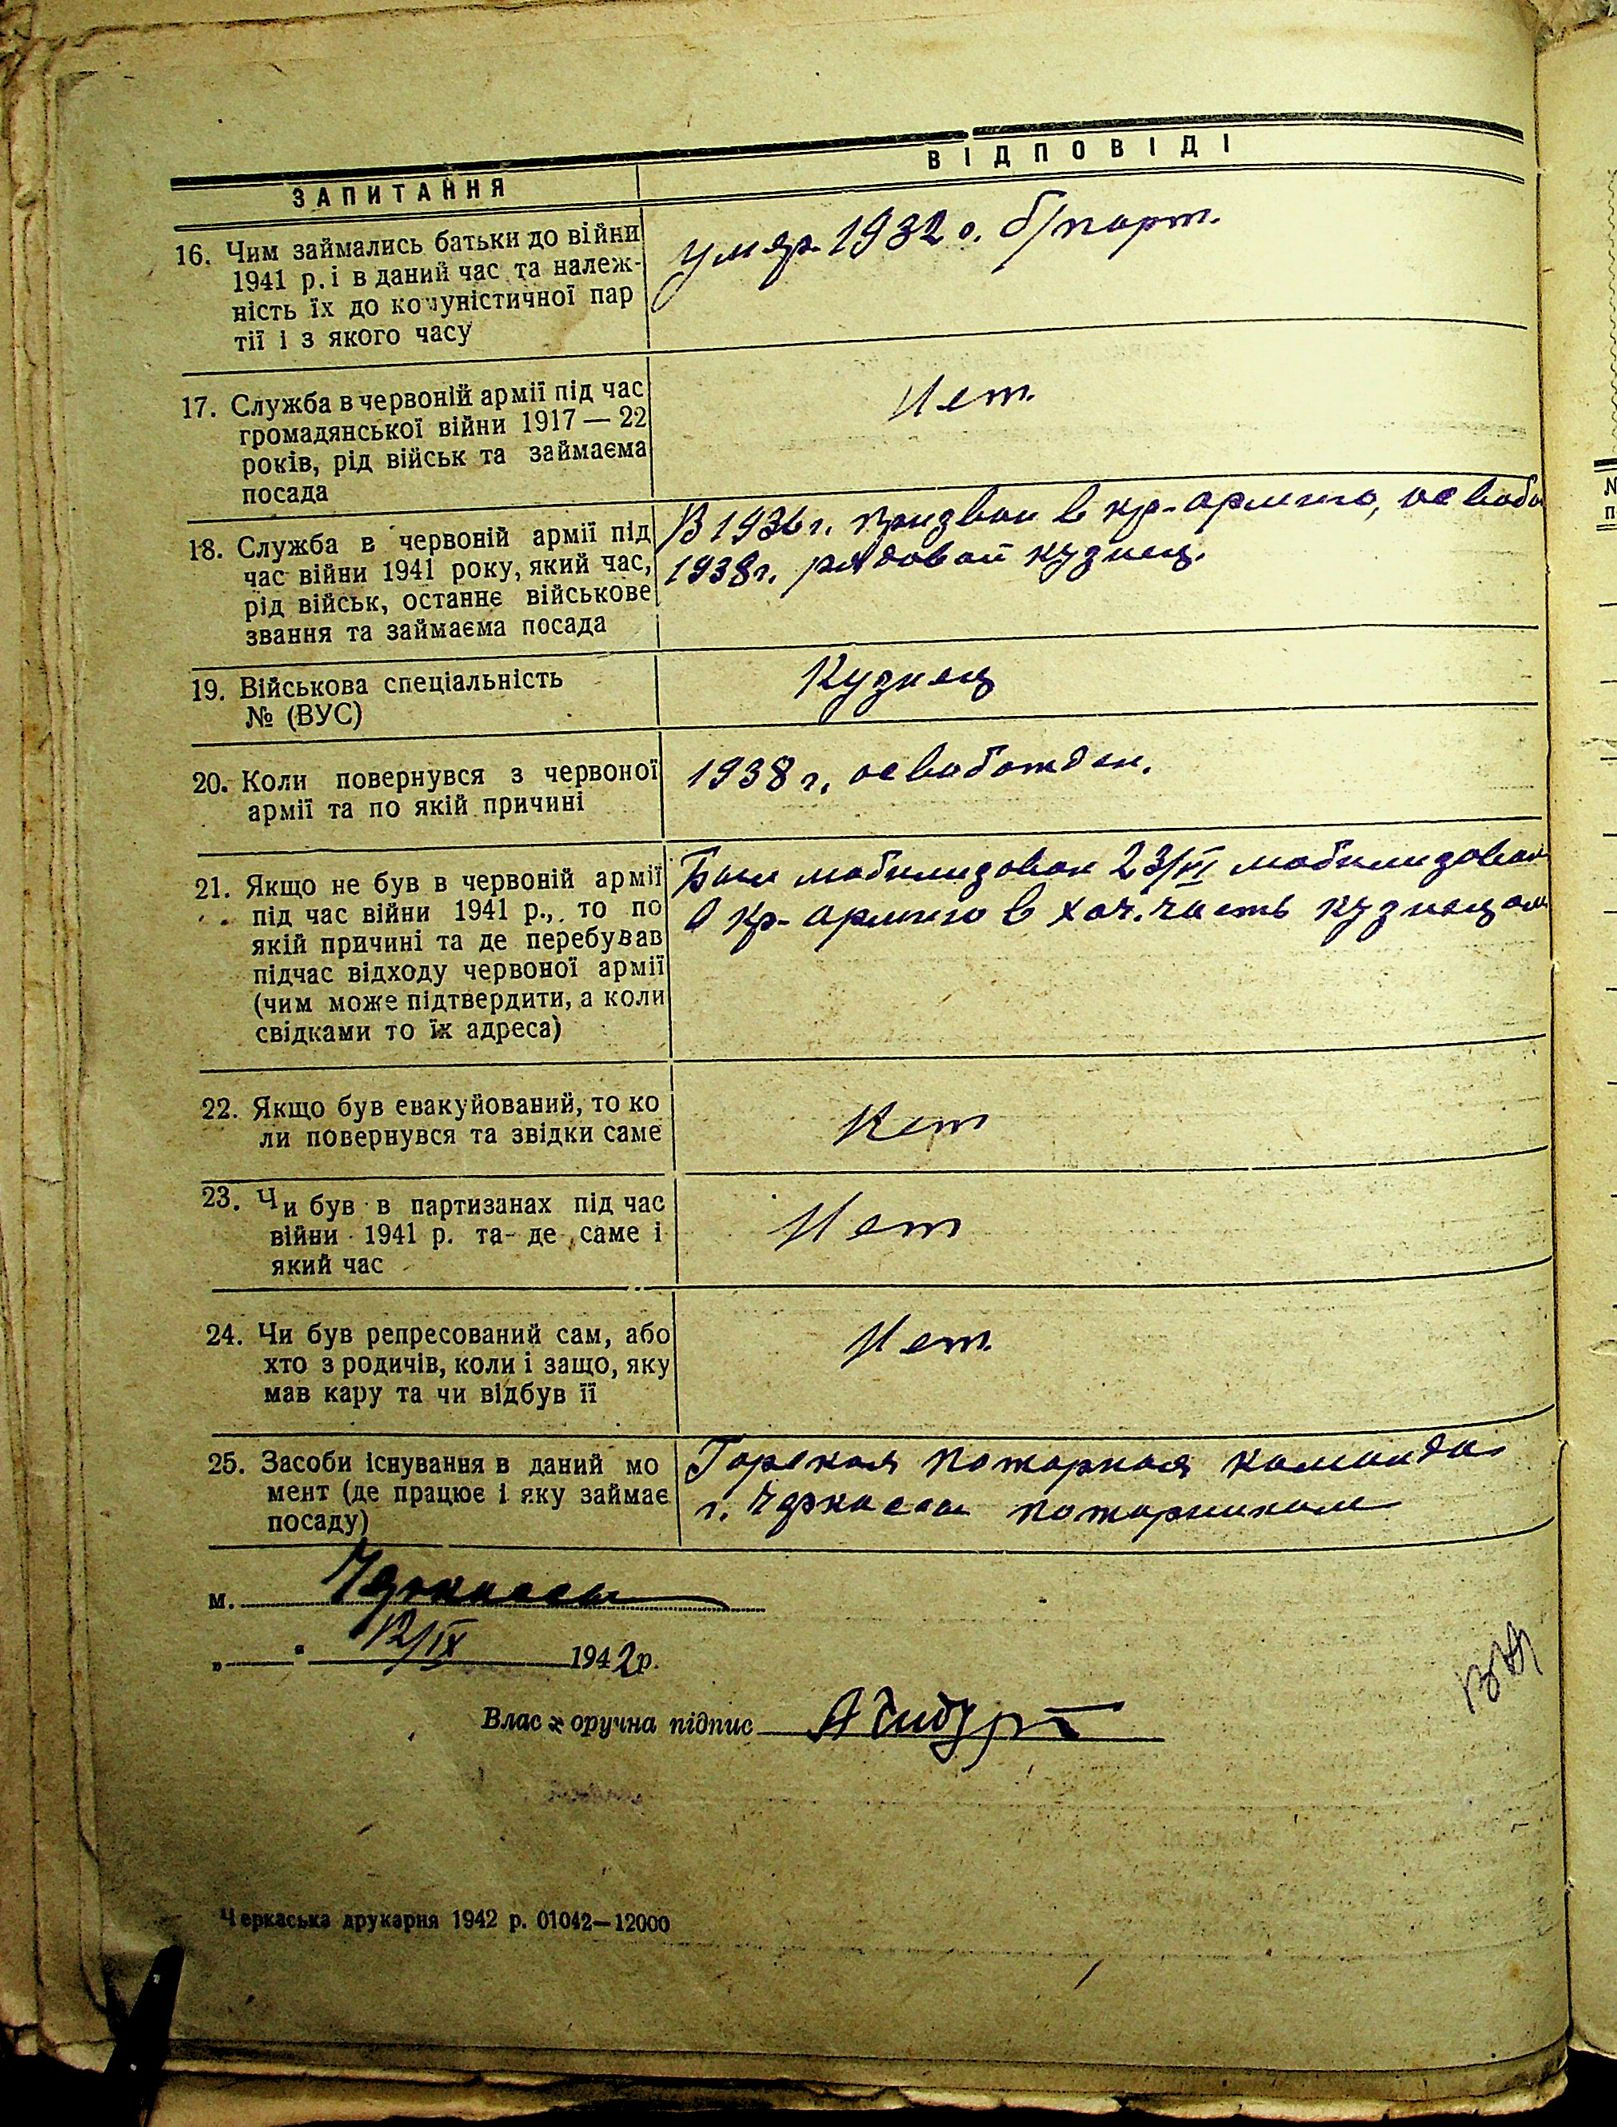 ЗАПИТАННЯ
ВІДПОВІДІ
16. Чим займались батьки до війни
1941 р. і в даний час та належ-
ність їх до комуністичної пар
тії і з якого часу
умер. 1932 г. б/парт.
17. Служба в червоній армії під час
громадянської війни 1917 — 22
років, рід військ та займаєма
посада
Нет.
18. Служба в червоній армії під
час війни 1941 року, який час,
рід військ, останнє військове
звання та займаєма посада
В 1936 г. призван в кр-армию, освобо
1938 г. рядовой кузнец.
19. Військова спеціальність
№ (ВУС)
Кузнец
20. Коли повернувся з червоної
армії та по якій причині
1938 г. освобожден.
21. Якщо не був в червоній армії
під час війни 1941 р., то по
якій причині та де перебував
підчас відходу червоної армії
(чим може підтвердити, а коли
свідками то їх адреса)
Был мобилизован 23/VI мобилизован
в кр-армию в хоз. часть кузнецом
22. Якщо був евакуйований, то ко
ли повернувся та звідки саме
Нет
23. Чи був в партизанах під час
війни 1941 р. та де саме і
який час
Нет
24. Чи був репресований сам, або
хто з родичів, коли і защо, яку
мав кару та чи відбув її
Нет.
25. Засоби існування в даний мо
мент (де працює і яку займає
посаду)
Горская пожарная команда
г. Черкассы пожарником
м. Черкассы
„ “ 12/IX 1942 р.
Влас оручна підпис
Черкаська друкарня 1942 р. 01042—12000